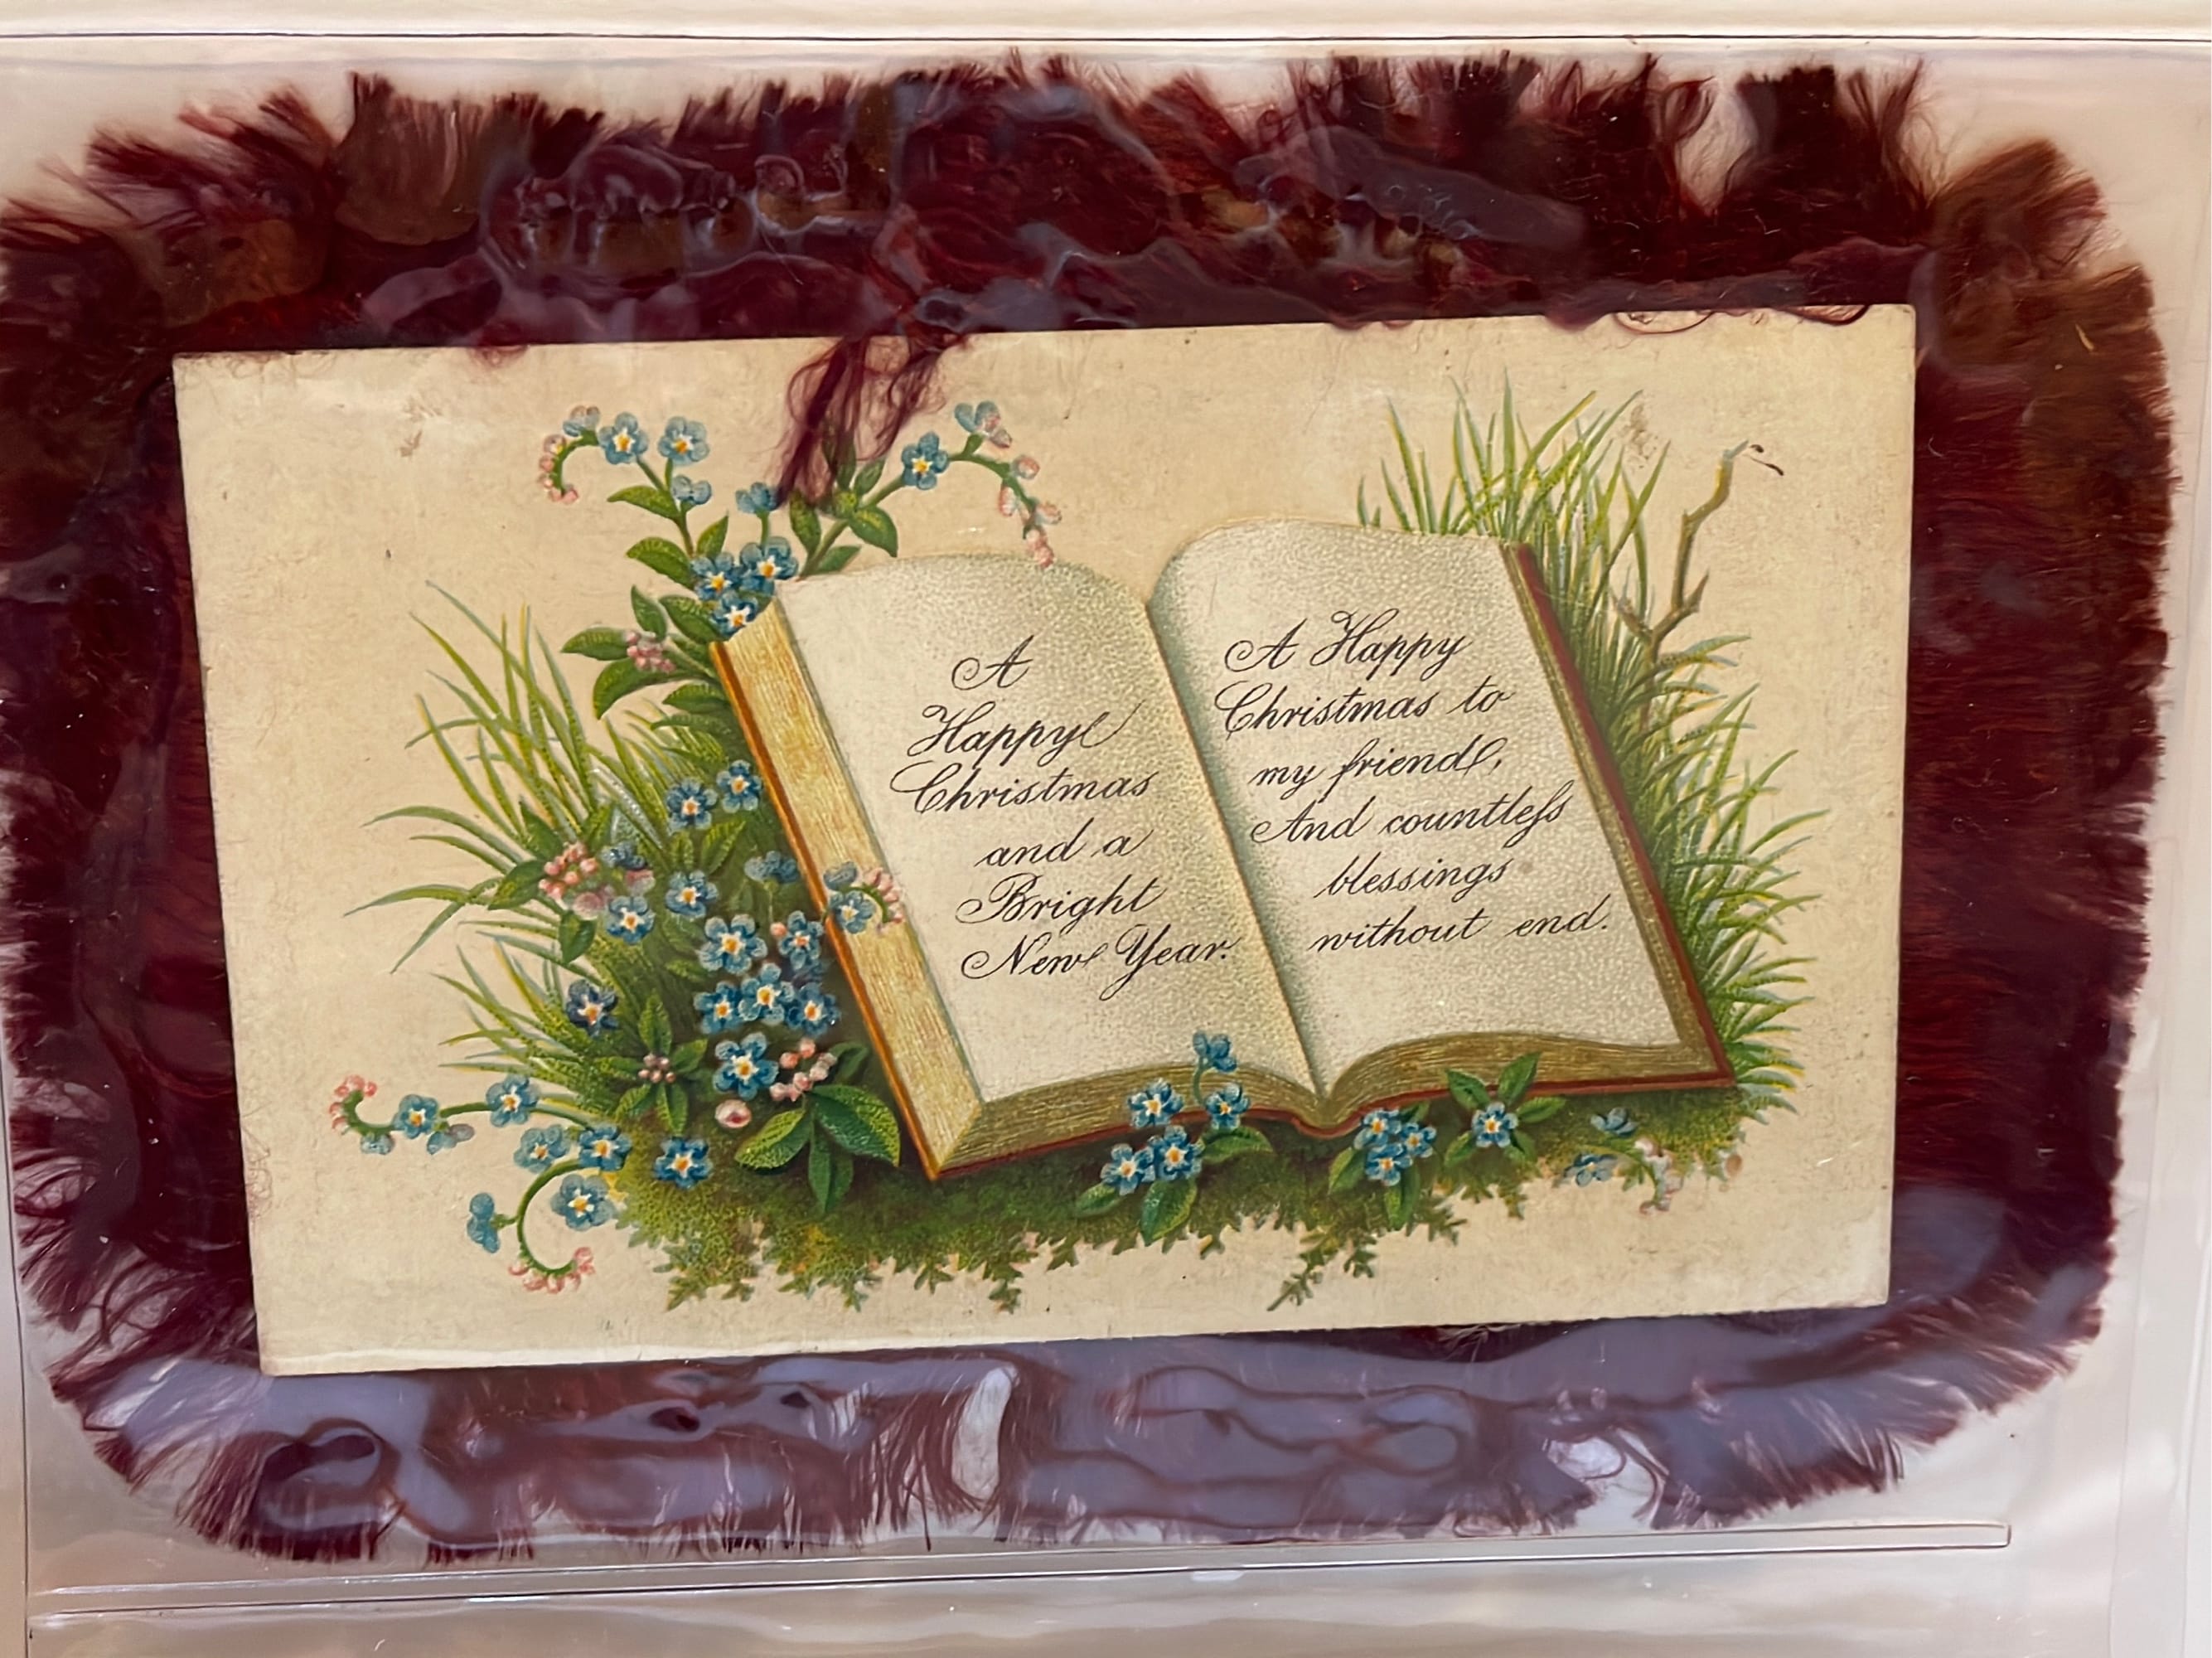 A
Happy
Christmas
and a
Bright
New Year.
A Happy
Christmas to
my friend,
And countleſs
blessings
without end.